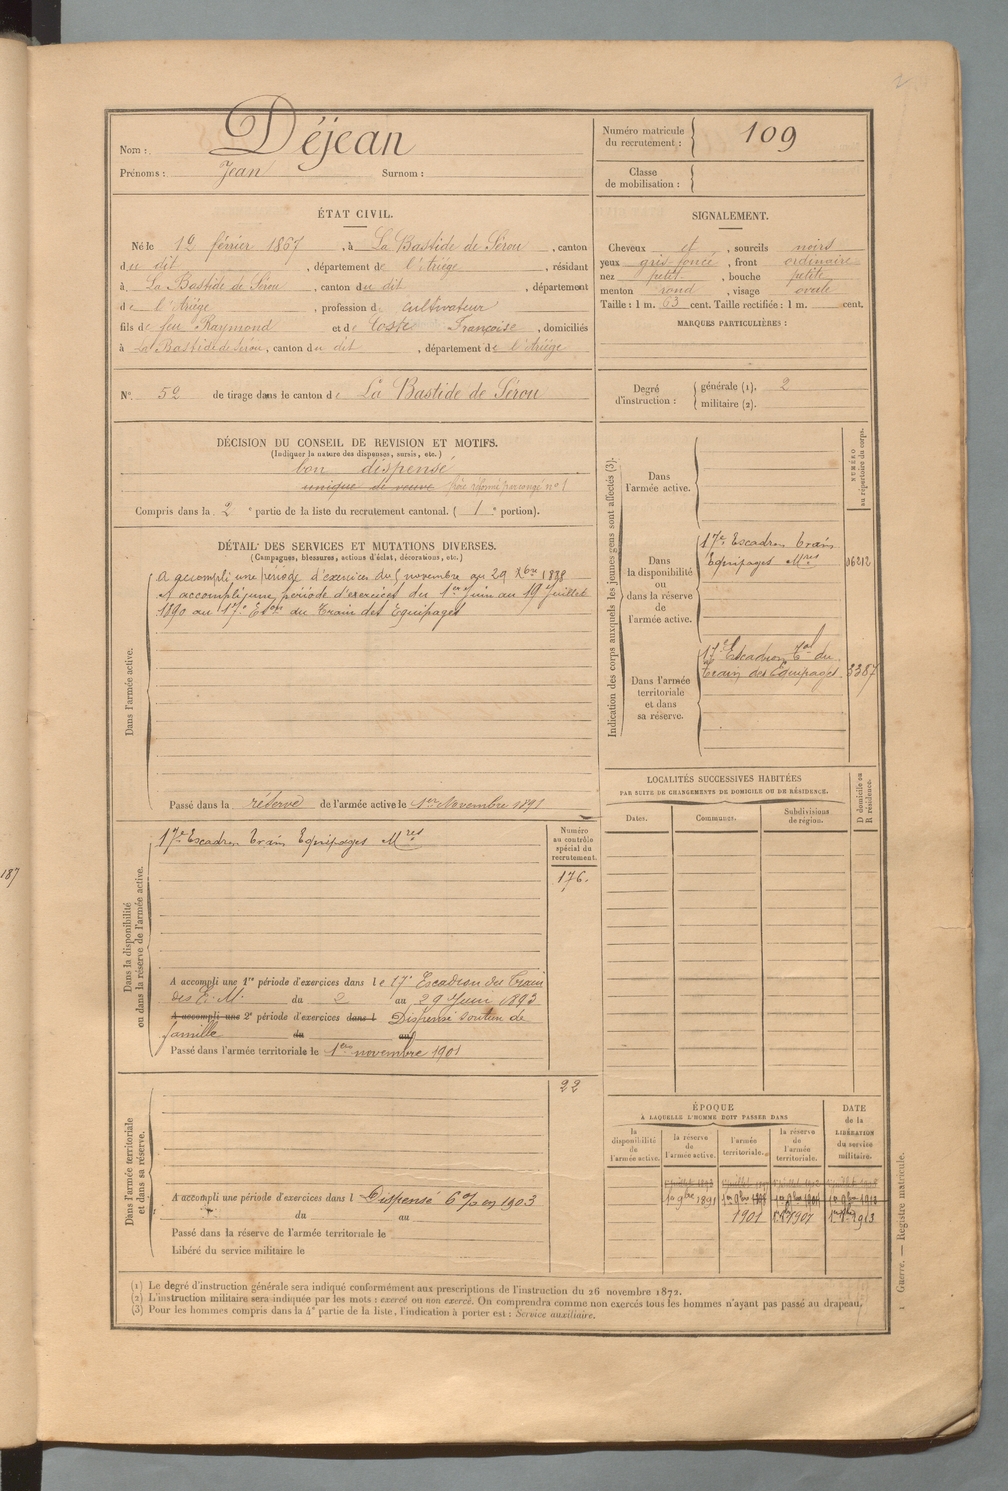 Nom : Déjean
Prénoms : Jean Surnom :
Numéro matricule
du recrutement : 109
Classe
de mobilisation :
ÉTAT CIVIL.
Né le 12 février 1867, à La Bastide de Sérou, canton
du dit, département de l'Ariége, résidant
à La Bastide de Sérou, canton du dit, département
de l'Ariége, profession de cultivateur
fils de feu Raymond et de Coste Françoise, domiciliés
à La Bastide de Sérou, canton du dit, département de l'Ariége
N° 52 de tirage dans le canton de La Bastide de Sérou
SIGNALEMENT.
Cheveux et, sourcils noirs
yeux gris foncé, front ordinaire
nez petit, bouche petite
menton rond, visage ovale
Taille : 1 m. 63 cent. Taille rectifiée : 1 m. cent.
MARQUES PARTICULIÈRES :
Degré
d'instruction :
générale (1). 2
militaire (2).
DÉCISION DU CONSEIL DE REVISION ET MOTIFS.
(Indiquer la nature des dispenses, sursis, etc.)
bon dispensé
unique de veuve frère réformé par congé n° 1
Compris dans la 2e partie de la liste du recrutement cantonal. ( 1e portion).
DÉTAIL DES SERVICES ET MUTATIONS DIVERSES.
(Campagnes, blessures, actions d'éclat, décorations, etc.)
Dans l'armée active.
A accompli une période d'exercices du novembre au 29 Xbre 1888
A accompli une période d'exercices du 1er Juin au 19 Juillet
1890 au 17e Escon du Train des Equipages
Passé dans la réserve de l'armée active le 1er Novembre 1891
Dans la disponibilité
ou dans la réserve de l'armée active.
17e Escadron Train Equipages Mres
Numéro
au contrôle
spécial du
recrutement.
176.
A accompli une 1re période d'exercices dans le 17e Escadron du Train
des E. M. du 2 au 29 Juin 1893
A accompli une 2e période d'exercices dans l Dispensé soutien de
famille du au
Passé dans l'armée territoriale le 1er novembre 1901
22
Dans l'armée territoriale
et dans sa réserve.
A accompli une période d'exercices dans l Dispensé 6 % en 1903
du au
Passé dans la réserve de l'armée territoriale le
Libéré du service militaire le
Indication des corps auxquels les jeunes gens sont affectés (3).
NUMÉRO
au répertoire du corps.
Dans
l'armée active.
Dans
la disponibilité
ou
dans la réserve
de
l'armée active.
17e Escadron Train
Equipages Mres
06212
Dans l'armée
territoriale
et dans
sa réserve.
17e Escadron Tal du
Train des Equipages
3387
LOCALITÉS SUCCESSIVES HABITÉES
PAR SUITE DE CHANGEMENTS DE DOMICILE OU DE RÉSIDENCE.
Dates.
Communes.
Subdivisions
de région.
D domicile ou
R résidence.
ÉPOQUE
À LAQUELLE L'HOMME DOIT PASSER DANS
la
disponibilité
de
l'armée active.
la réserve
de
l'armée active.
l'armée
territoriale.
la réserve
de
l'armée
territoriale.
DATE
de la
LIBÉRATION
du service
militaire.
1er 9bre 1891
1901
1907
1913
(1) Le degré d'instruction générale sera indiqué conformément aux prescriptions de l'instruction du 26 novembre 1872.
(2) L'instruction militaire sera indiquée par les mots : exercé ou non exercé. On comprendra comme non exercés tous les hommes n'ayant pas passé au drapeau.
(3) Pour les hommes compris dans la 4e partie de la liste, l'indication à porter est : Service auxiliaire.
1 Guerre. — Registre matricule.
187